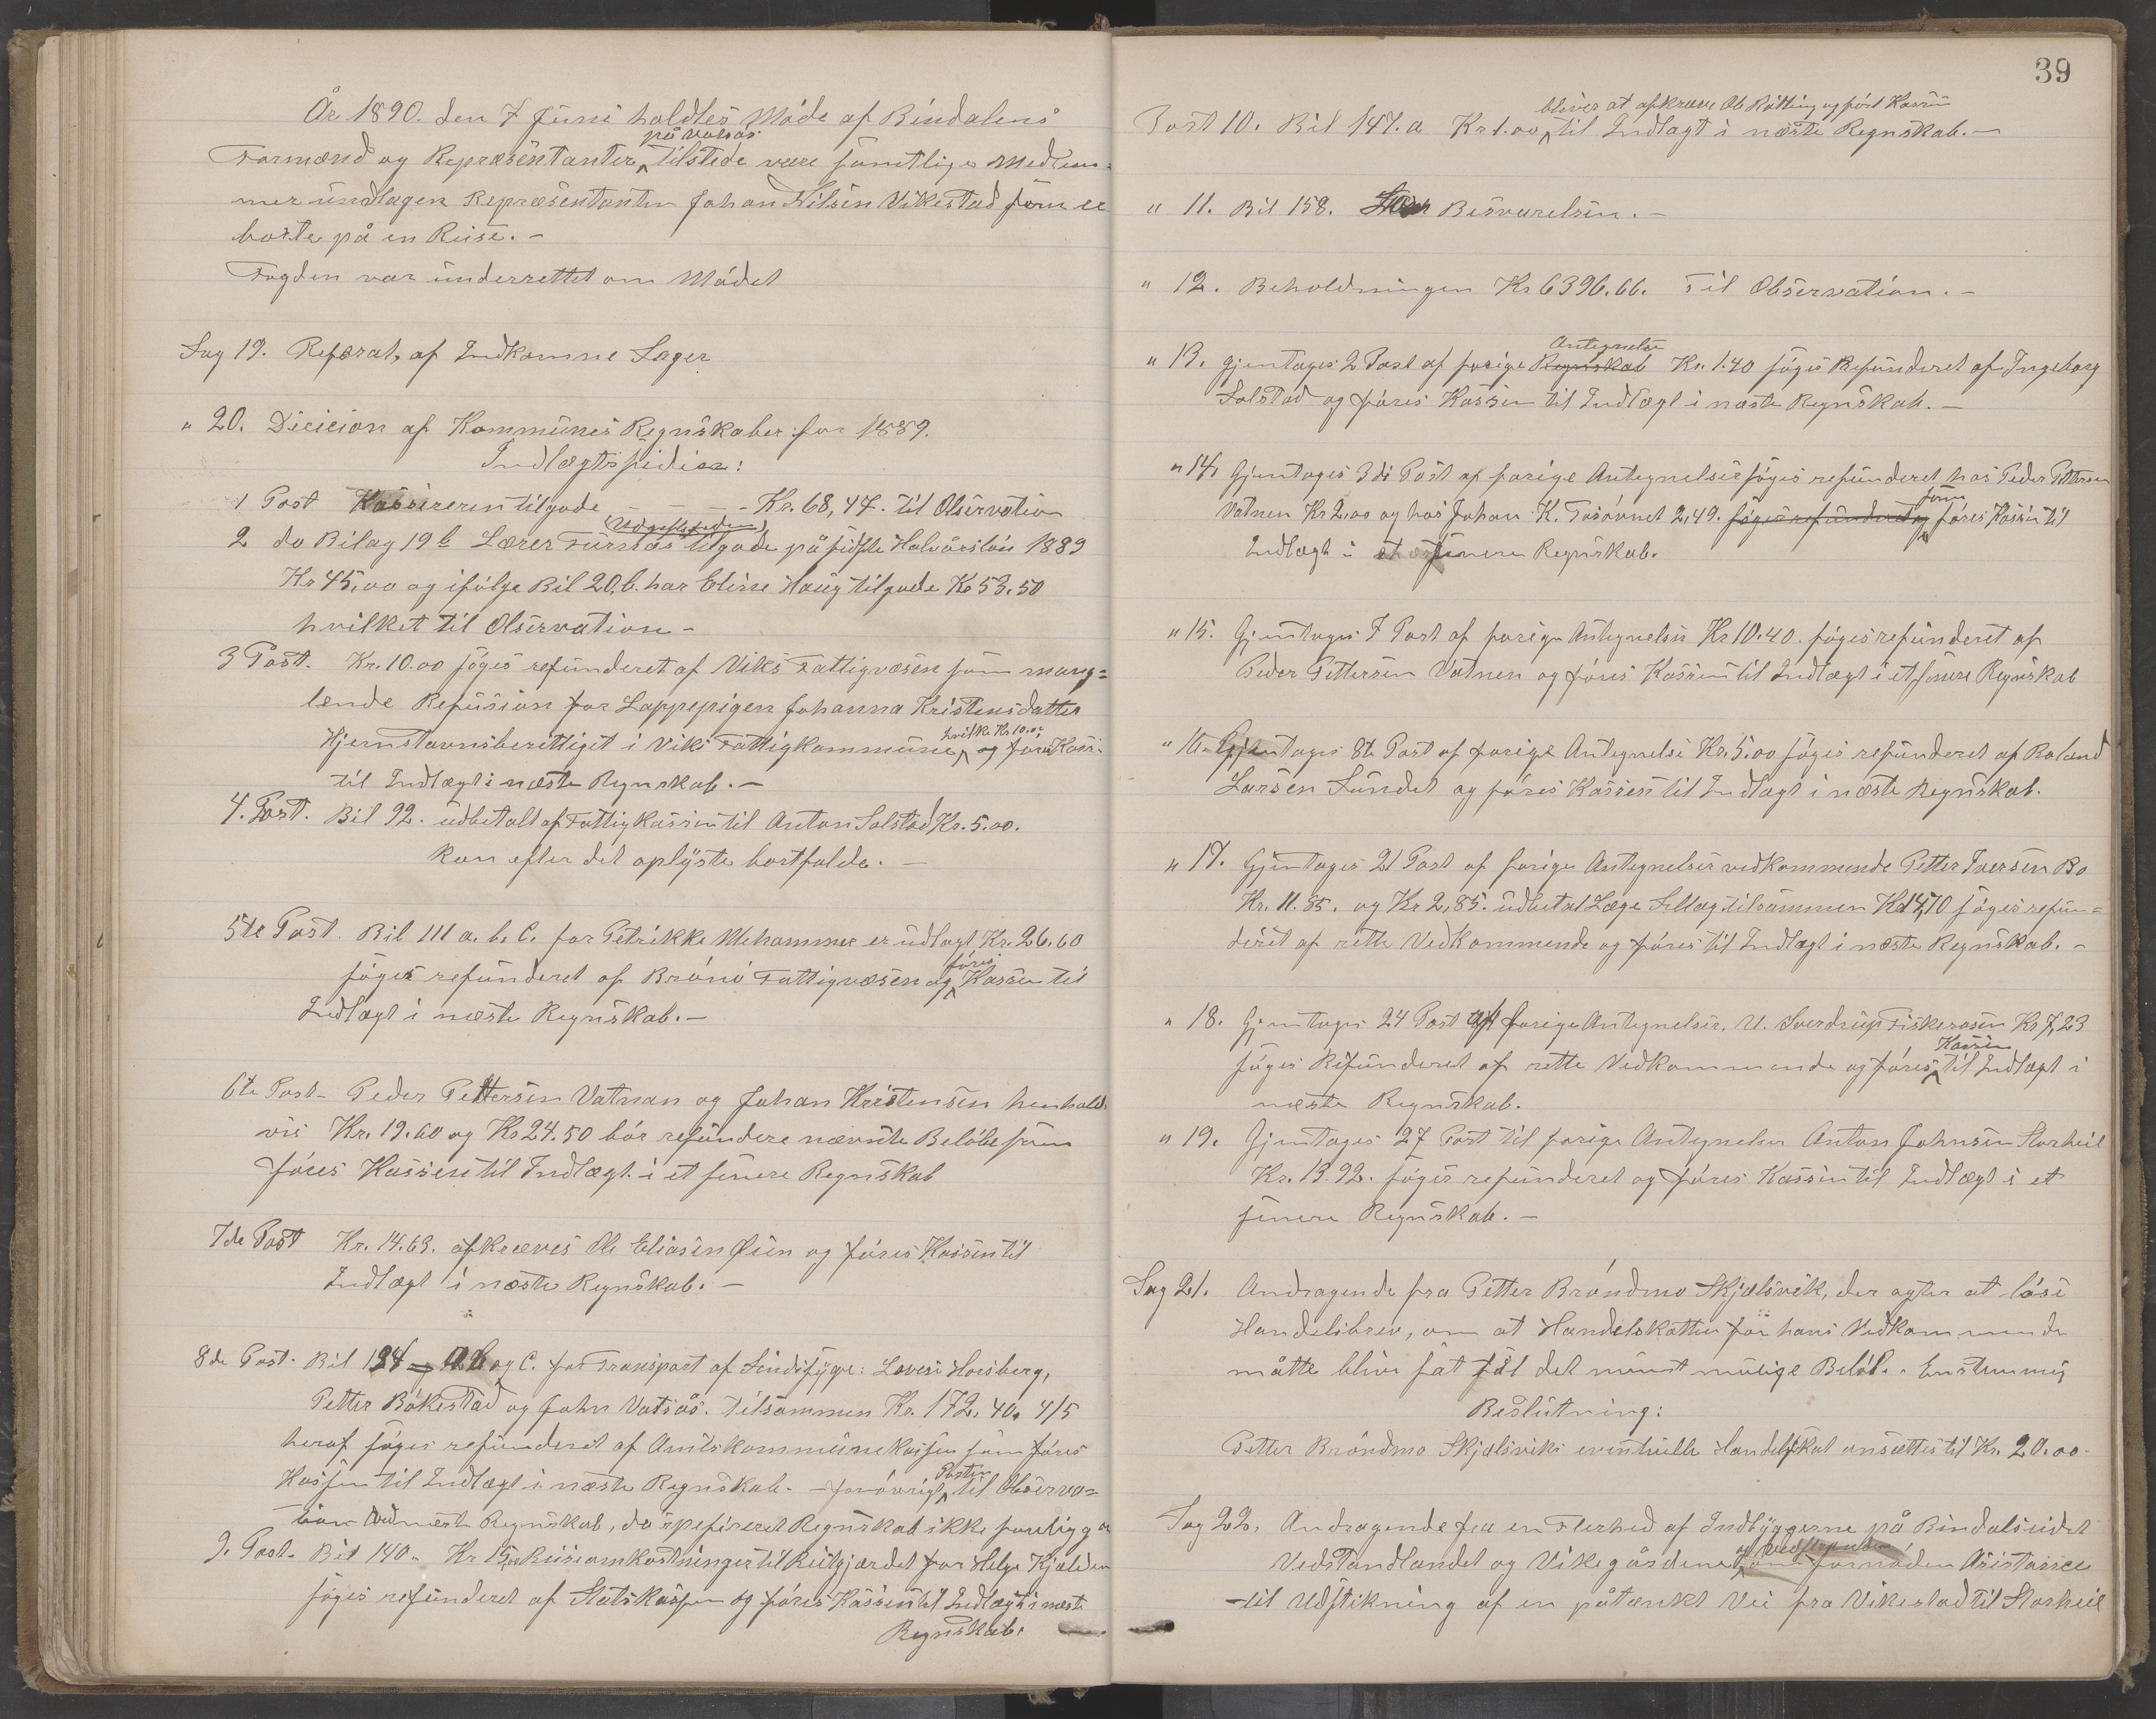 År 1890. den 7 Juni holdtes Møde af Bindalens
Formænd og Repræsentanter på Vassås. Tilstede vare samtlige Medlem-
mer undtagen Repræsentanten Johan Nilsen Vikestad som er
borte på en Reise. -
Fogden var underrettet om Mødet
Sag 19. Referat, af Indkomne Sager
" 20. Dicicion af Kommunes Regnskaber for 1889.
Indtægtssiden:
1 Post Kassereren tilgode - - - - Kr. 68,47. til Observation
(Udgiftssiden)
2 do Bilag 19 b Lærer Furstøs tilgode på sidste Halvårsløn 1889
Kr 45,00 og ifølge Bil 20,b. har Elise Haug tilgode Kr 53.50
hvilket til Observation -
3 Post. Kr. 10.00 søges refunderet af Viks Fattigvæsen som mang=
lende Refusion for Lappepigen Johanna Kristensdatter
Hjemstavnsberettiget i Viks Fattigkommune, hvilke Kr 10.00 og føres Kass.
til Indtægt i næste Regnskab. -
4. Post. Bil 92. udbetalt af Fattigkassen til Anton Solstad Kr. 5.00.
kan efter det oplyste bortfalde. -
5te Post. Bil 111 a. b. C. for Petrikke Mehammer er udlagt Kr. 26.60
søges refunderet af Brønø Fattigvæsen og føres Kassen til
Indtægt i næste Regnskab. -
6te Post - Peder Pettersen Vatnan og Johan Kristensen henhold
vis Kr. 19.60 og Kr 24.50 bør refundere nævnte Beløb som
føres Kassen til Indtægt i et senere Regnskab
7de Post Kr. 14.63. afkræves Ole Eliasen Øien og føres Kassen til
Indtægt i næste Regnskab. -
8de Post. Bil 134 a b og C. for Transport af Sindssyge: Lovise Horsberg,
Petter Bøkestad og John Vatsås. tilsammen Kr. 172,40. 4/5
heraf søges refunderet af Amtskommunekassen som føres
Kassen til Indtægt i næste Regnskab. - forøvrigt Posten til Observa=
tion ved næste Regnskab, da speficeret Regnskab ikke foreligger
9. Post. Bil 140. Kr 15, Reiseomkostninger til Reitgjærdet for Helge Kjelden
søges refunderet af Statskassen og føres Kassen til Indtægt i næste
Regnskab.
39
Post 10. Bil 147. a Kr 1.00 bliver at afkræve Ole Røtting og ført Kassen til Indtægt i næste Regnskab. -
" 11. Bil 158. Besvarelsen. -
" 12. Beholdningen Kr 6396.66. Til Observation. -
" 13. Gjentages 2 Post af forige Regnskab Antegnelse Kr. 1.40 søges Refunderet af Ingeborg
Solstad og føres Kassen til Indtægt i næste Regnskab. -
" 14. Gjentages 3de Post af forige Antegnelser søges refunderet hos Peder Pettersen
Vatnen Kr 2.00 og hos Johan K. Tosøvnet 2,49. søges refunderet og som føres Kassen til
Indtægt i et senere Regnskab.
" 15. Gjentages 7 Post af forige Antegnelser Kr 10.40. søges refunderet af
Peder Pettersen Vatnen og føres Kassen til Indtægt i et senere Regnskab
" 16. Gjentages 8te Post af forige Antegnelse Kr. 5.00 søges refunderet af Roland
Larsen Sundet og føres Kassen til Indtægt i næste Regnskab.
" 17. Gjentages 21 Post af forige Antegnelser vedkommende Petter Iversen Bo
Kr. 11.85. og Kr 2,85. udbetalt Læge tilsammen Kr 14,70 søges refun=
deret af rette Vedkommende og føres til Indtægt i næste Regnskab. -
" 18. Gjentages 24 Post af forige Antegnelser. U. Sverdrup Fiskerosen Kr 7,23
søges Refunderet af rette Vedkommende og føres Kassen til Indtægt i
næste Regnskab.
" 19. Gjentages 27 Post til forige Antegnelser Anton Johnsen Storheil
Kr. 13.92. søges refunderet og føres Kassen til Indtægt i et
senere Regnskab. -
Sag 21. Andragende fra Petter Brøndmo Skjelsvik, der agter at løse
Handelsbrev, om at Handelskatten for hans Vedkommende
måtte blive sat til det minst mulige Beløb. - Enstemmig
Beslutning:
Petter Brøndmo Skjelsviks eventuelle Handelskat ansættes til Kr. 20.00-
Sag 22. Andragende fra en Flerhed af Indbyggerne på Bindalseidet
Vedstrandlandet og Vikegårdene, om fornøden Asistance
til Udstikning af en påtænkt Vei fra Vikestad til Storheil